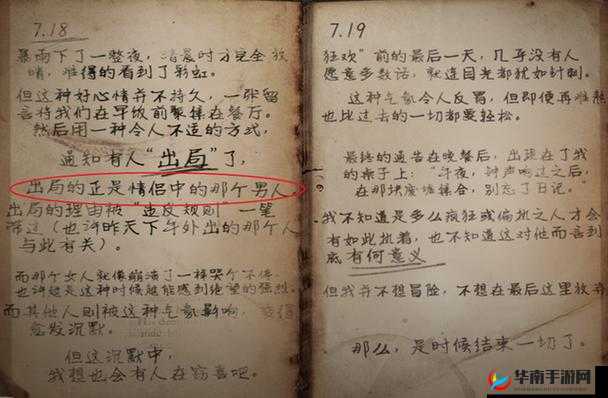 7.18
暴雨下了一整夜，清晨时才完全放
晴，难得的看到了彩虹。
但这种好心情并不持久，一张留
言将我们在早饭前聚集在餐厅。
然后用一种令人不适的方式，
通知有人“出局”了，
出局的正是情侣中的那个男人
出局的理由被“违反规则”一笔
带过（也许昨天下午外出的那个人
与此有关）。
而那个女人就像崩溃了一样哭个不停
也许越是这种时候越能感到绝望的强烈。
而其他人则被这种气氛影响，变得
愈发沉默。
但这沉默中，
我想也会有人在窃喜吧。
7.19
狂欢”前的最后一天，几乎没有人
愿意多数话，就连目光都犹如针刺。
这种气氛令人反胃，但即便再难熬
也比过去的一切都要轻松。
最终的通告在晚餐后，出现在了我
的桌子上：“午夜，钟声响过之后，
在那块废墟集合，别忘了日记。”
我不知道是多么疯狂或偏执之人才会
有如此执着，也不知道这对他而言到
底有何意义
但我并不想冒险，不想在最后这里放弃
那么，是时候结束一切了。
华南手游网